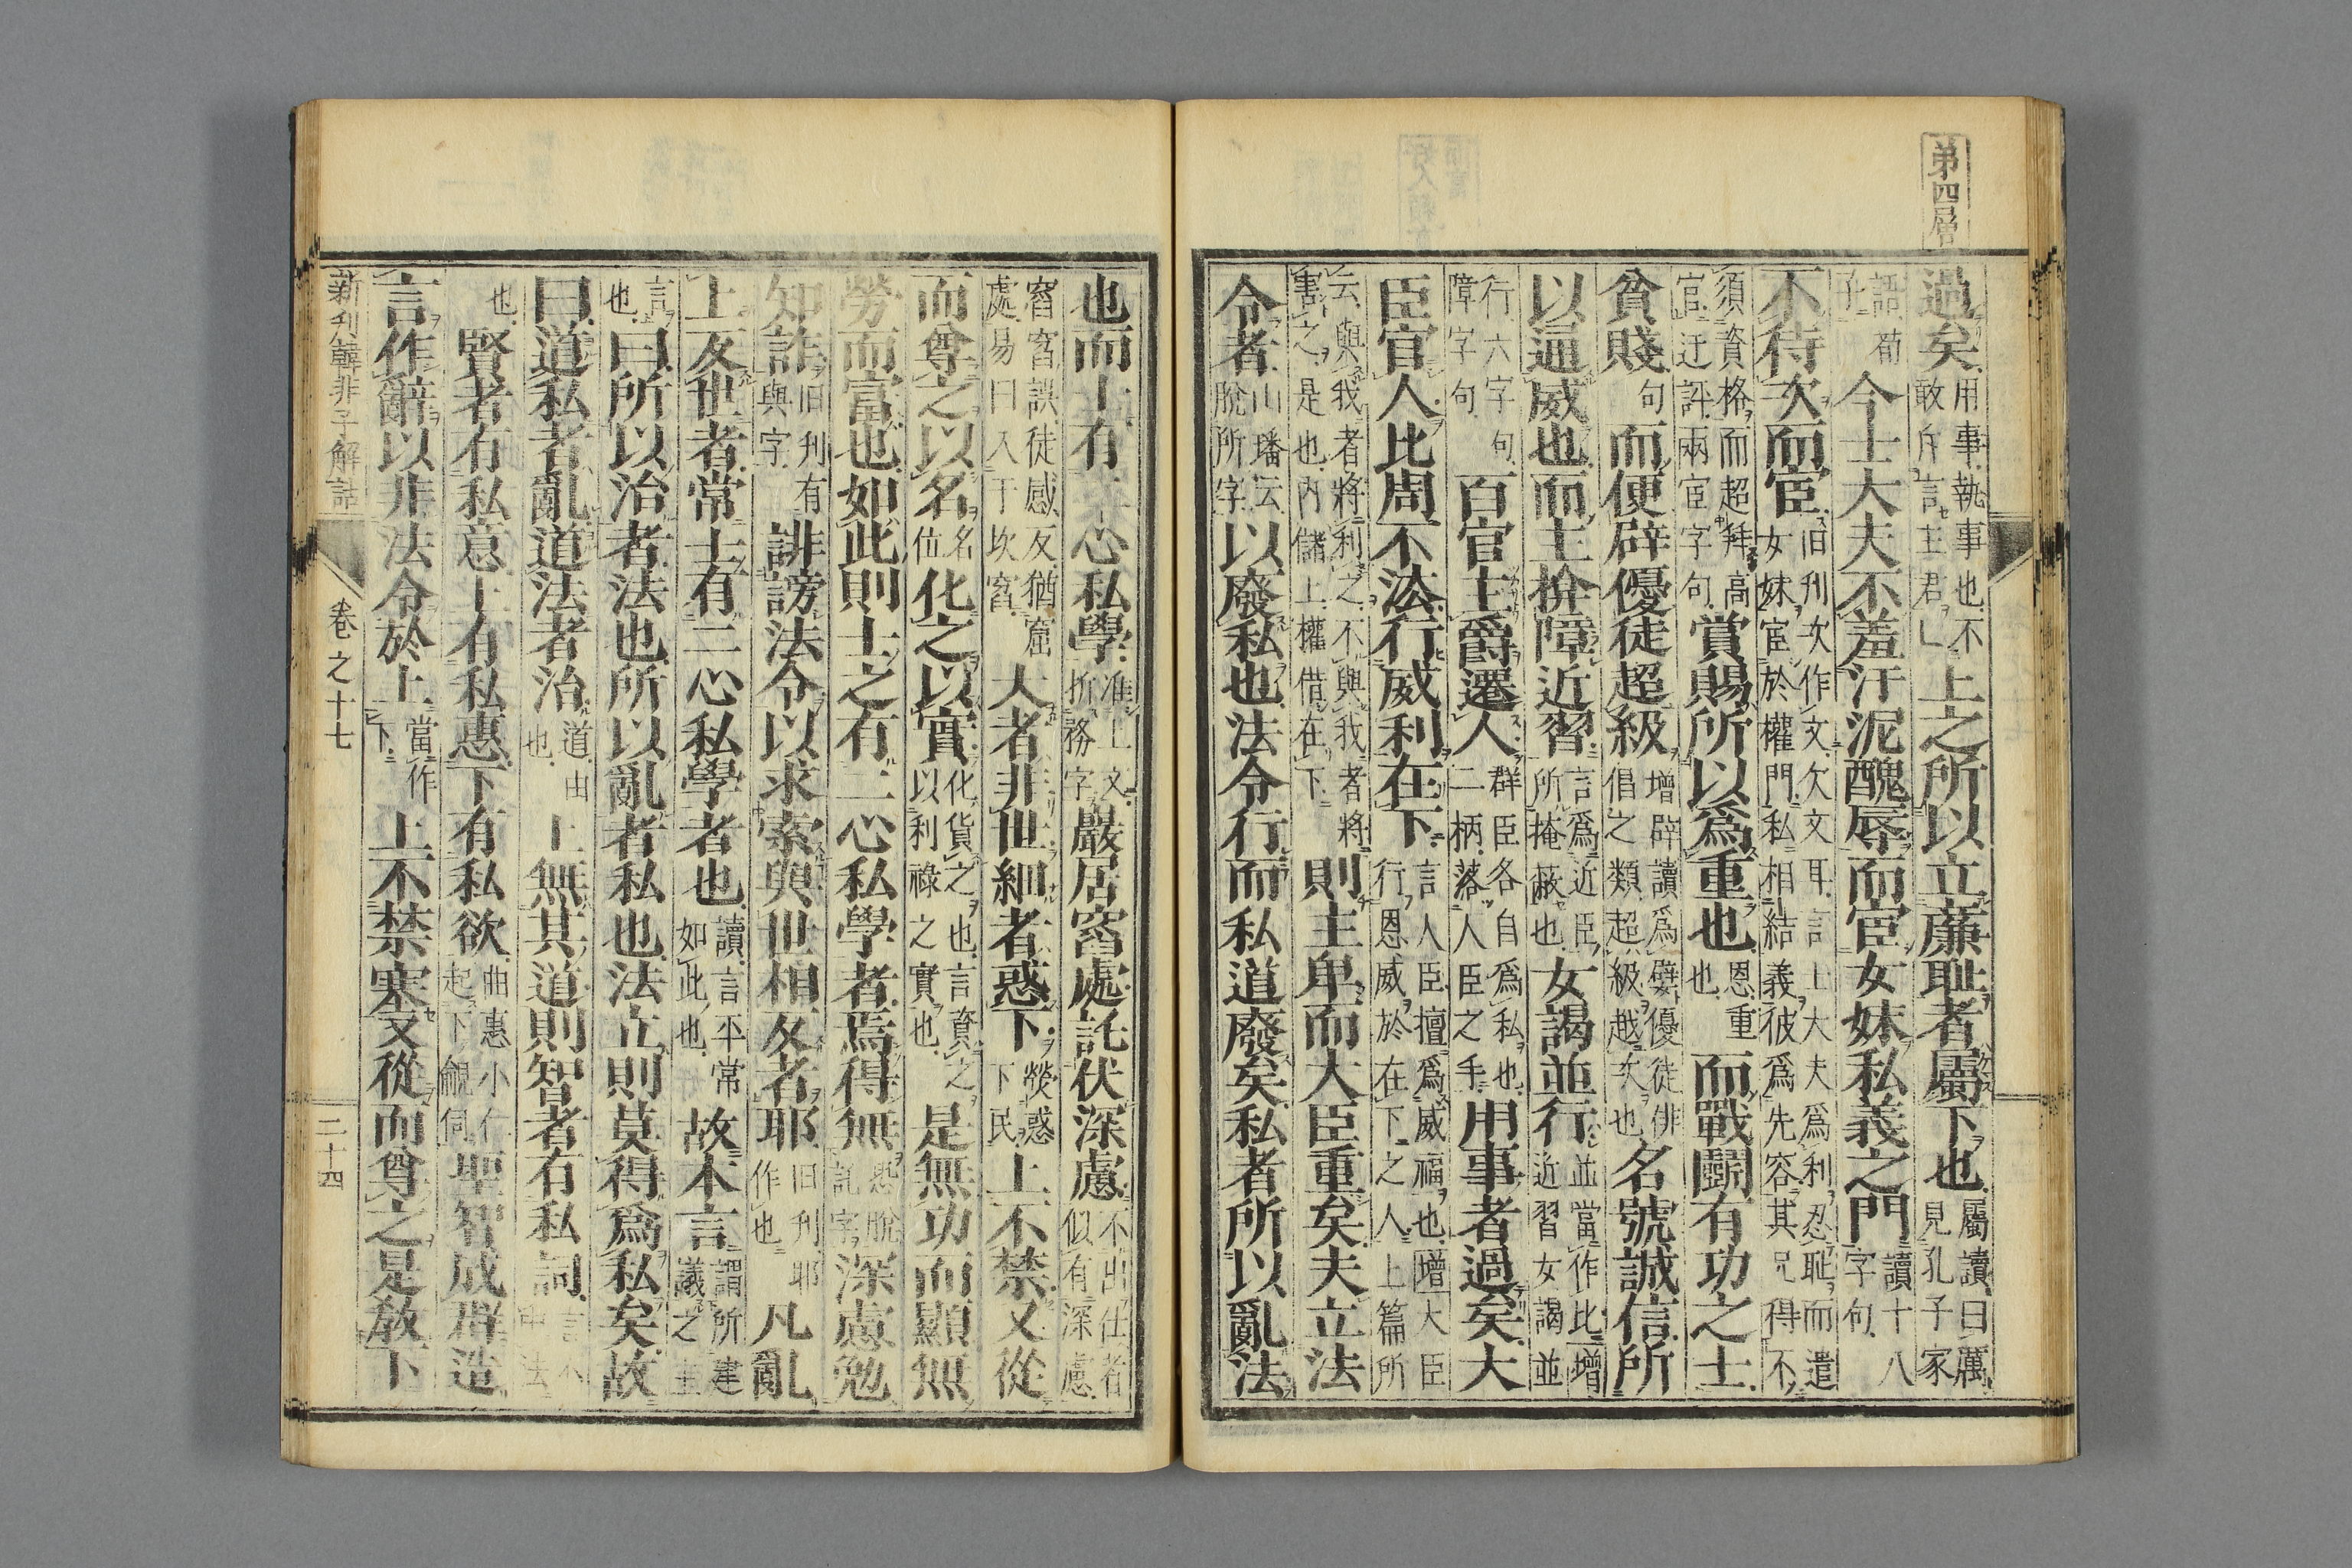 第四層
過矣用事執事也不敢斥言主君上之所以立廉耻者屬下也屬讀曰厲見孔子家
語荀子今士大夫不羞汙泥醜辱而宦女妹私義之門讀十八字句
不待次而宦旧刋次作文文欠文耳言上大夫爲利忍耻而遣女妹宦於權門私相結義彼爲先容其兄得不
須資格而超拜高官迂評兩宦字句賞賜所以爲重也恩重也而戰鬪有功之士
貧賤句而便辟優徒超級增辟讀爲嬖優徒俳倡之類超級越次也名號誠信所
以通威也而主揜障近習言爲近臣所掩蔽也女謁並行並當作比增近習女謁並
行六字句障字句百官主爵遷人群臣各自爲私也二柄落人臣之手用事者過矣大
臣官人比周不法行威利在下言人臣擅爲威福也增大臣行恩威於在下之人上篇所
云與我者將利之不與我者將害之是也內儲上權借在下則主卑而大臣重矣夫立法
令者山璠云脫所字以廢私也法令行而私道廢矣私者所以亂法
也而士有二心私學准上文折務字嚴居窞處託伏深慮不出仕者似有深慮
窞窞誤徒感反猶窟處易曰入于坎窞大者非世細者惑下熒惑下民上不禁又從
而尊之以名名位化之以實化貨之也言資之以利祿之實也是無功而顯無
勞而富也如此則士之有二心私學者焉得無恐脫託字深慮勉
知詐旧刋有與字誹謗法令以求索與世相反者耶旧刋耶作也凡亂
上反世者常士有二心私學者也讀言平常如此也故本言謂所建議之主
言也曰所以治者法也所以亂者私也法立則莫得爲私矣故
曰道私者亂道法者治道由也上無其道則智者有私詞言不中法
也賢者有私意上有私惠下有私欲曲惠小仁起下覦伺聖智成群造
言作辭以非法令於上當作下上不禁塞又從而尊之是敎下
新刋韓非子解詁
卷之十七
二十四